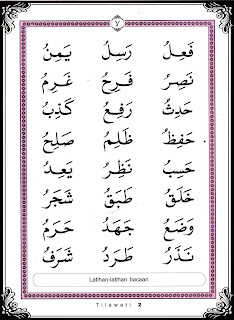 ٢
فَعِلُ رَسِلُ يَمِنُ
نَصِرُ فَرِحُ غَرِمُ
حَدِثُ رَفِعُ كَذِبُ
حَفِظُ ظَلِمُ صَلِحُ
حَسِبُ نَظِرُ يَعِدُ
خَلَقُ طَبَقُ شَجَرُ
وَضَعُ جَهَدُ حَرَمُ
نَذَرُ طَرَدُ شَرَفُ
Latihan-latihan bacaan
Tilawati 2